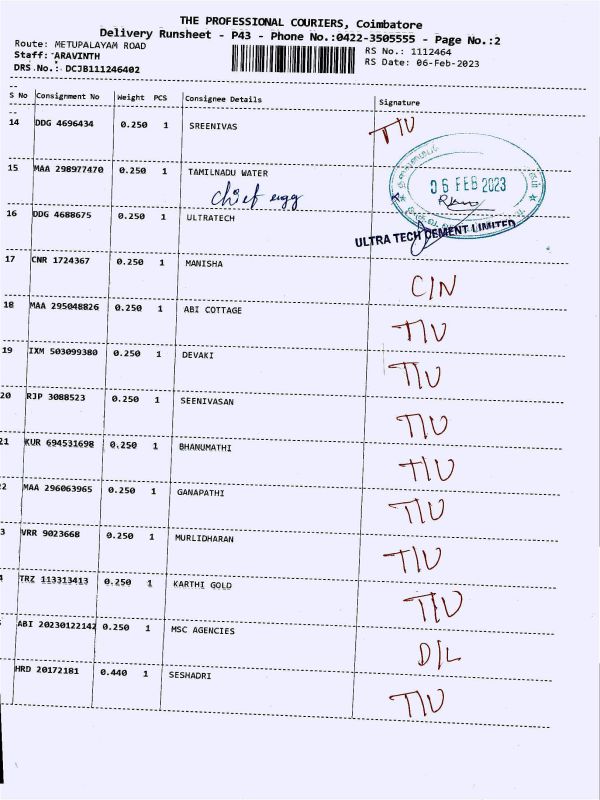 THE PROFESSIONAL COURIERS, Coimbatore
Delivery Runsheet - P43 - Phone No.:0422-3505555 - Page No.:2
Route: METUPALAYAM ROAD
RS No.: 1112464
Staff: ARAVINTH
RS Date: 06-Feb-2023
DRS No.: DCJB111246402
S No Consignment No Weight PCS Consignee Details Signature
14 DDG 4696434 0.250 1 SREENIVAS T/U
15 MAA 298977470 0.250 1 TAMILNADU WATER
Chief engg
06 FEB 2023
16 DDG 4688675 0.250 1 ULTRATECH
ULTRA TECH CEMENT LIMITED
17 CNR 1724367 0.250 1 MANISHA C/N
18 MAA 295048826 0.250 1 ABI COTTAGE T/U
19 IXM 503099380 0.250 1 DEVAKI T/U
20 RJP 3088523 0.250 1 SEENIVASAN T/U
21 KUR 694531698 0.250 1 BHANUMATHI T/U
2 MAA 296063965 0.250 1 GANAPATHI T/U
3 VRR 9023668 0.250 1 MURLIDHARAN T/U
4 TRZ 113313413 0.250 1 KARTHI GOLD T/U
ABI 20230122142 0.250 1 MSC AGENCIES D/L
HRD 20172181 0.440 1 SESHADRI T/U